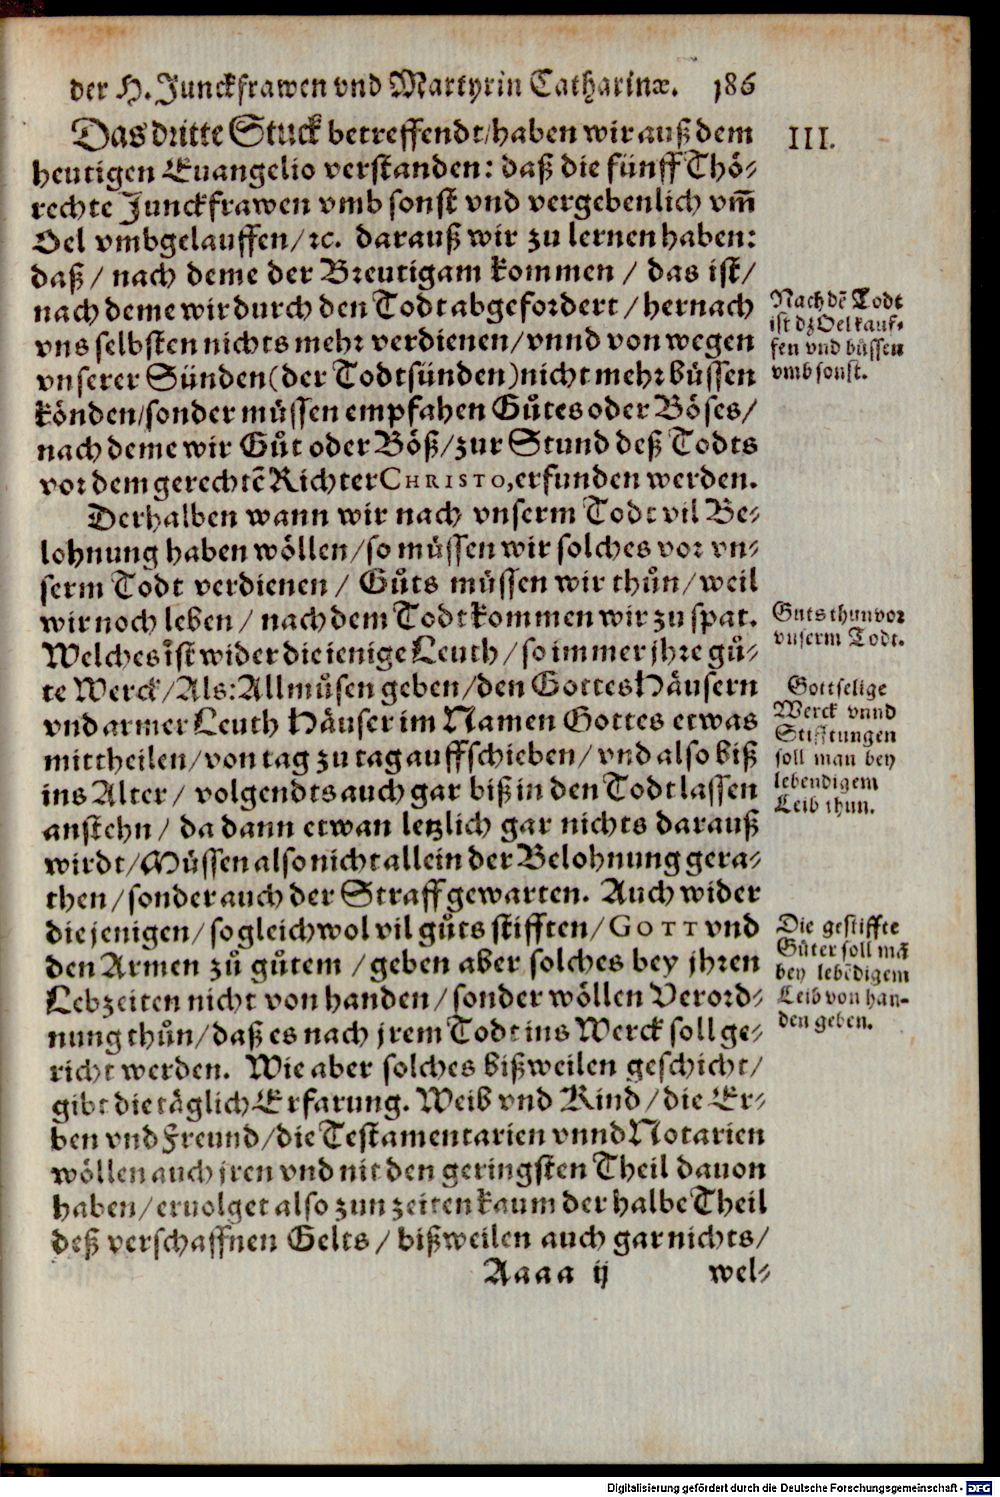 der H. Junckfrawen vnd Martyrin Catharinæ. 186
Das dritte Stuck betreffendt/haben wir auß dem
III.
heutigen Euangelio verstanden: daß die fünff Thö-
rechte Junckfrawen vmb sonst vnd vergebenlich vm̄
Oel vmbgelauffen/ꝛc. darauß wir zu lernen haben:
daß/ nach deme der Breutigam kommen / das ist/
nach deme wir durch den Todt abgefordert / hernach
vns selbsten nichts mehr verdienen/vnnd von wegen
vnserer Sünden(der Todtsünden)nicht mehr büssen
könden/sonder müssen empfahen Gůtes oder Böses/
nach deme wir Gůt oder Böß/zur Stund deß Todts
vor dem gerechtē Richter CHRISTO,erfunden werden.
Nach dē Todt
ist dz Oel kauf-
fen vnd büssen
vmb sonst.
Derhalben wann wir nach vnserm Todt vil Be-
lohnung haben wöllen/so müssen wir solches vor vn-
serm Todt verdienen / Gůts müssen wir thůn/weil
wir noch leben / nach dem Todt kommen wir zu spat.
Welches ist wider die ienige Leuth/so immer jhre gů-
te Werck/Als:Allmůsen geben/den Gottes Häusern
vnd armer Leuth Häuser im Namen Gottes etwas
mittheilen/von tag zu tag auffschieben/vnd also biß
ins Alter/ volgendts auch gar biß in den Todt lassen
anstehn/ da dann etwan letzlich gar nichts darauß
wirdt/Müssen also nicht allein der Belohnung gera-
then/sonder auch der Straff gewarten. Auch wider
die jenigen/so gleichwol vil gůts stifften/GOTT vnd
den Armen zů gůtem /geben aber solches bey jhren
Lebzeiten nicht von handen/sonder wöllen Verord-
nung thůn/daß es nach jrem Todt ins Werck soll ge-
richt werden. Wie aber solches bißweilen geschicht/
gibt die täglich Erfarung. Weib vnd Kind/die Er-
ben vnd Freund/die Testamentarien vnnd Notarien
wöllen auch jren vnd nit den geringsten Theil dauon
haben/eruolget also zun zeiten kaum der halbe Theil
deß verschaffnen Gelts / bißweilen auch gar nichts/
Guts thun vor
vnserm Todt.
Gottselige
Werck vnnd
Stifftungen
soll man bey
lebendigem
Leib thun.
Die gestiffte
Güter soll mā
bey lebēdigem
Leib von han-
den geben.
Aaaa ij wel-
Digitalisierung gefördert durch die Deutsche Forschungsgemeinschaft - DFG